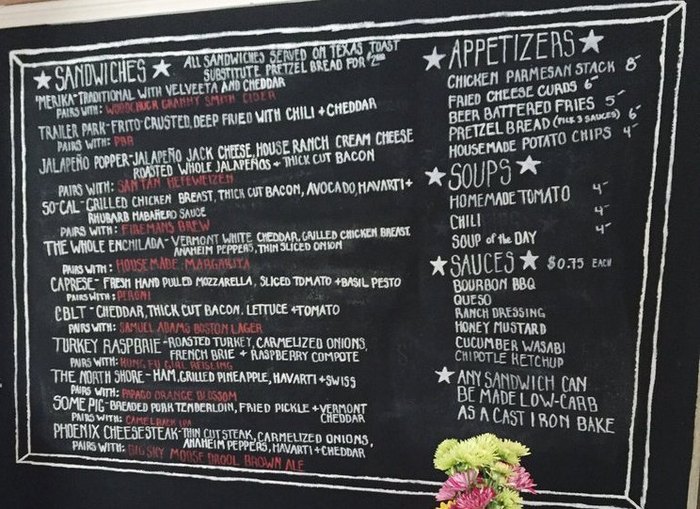 ★ SANDWICHES ★ ALL SANDWICHES SERVED ON TEXAS TOAST
SUBSTITUTE PRETZEL BREAD FOR $2.00
'MERIKA-TRADITIONAL WITH VELVEETA AND CHEDDAR
PAIRS WITH: WOODCHUCK GRANNY SMITH CIDER
TRAILER PARK-FRITO-CRUSTED, DEEP FRIED WITH CHILI + CHEDDAR
PAIRS WITH: PBR
JALAPEÑO POPPER-JALAPEÑO JACK CHEESE, HOUSE RANCH CREAM CHEESE
ROASTED WHOLE JALAPEÑOS + THICK CUT BACON
PAIRS WITH: SAN TAN HEFEWEIZEN
SO-CAL-GRILLED CHICKEN BREAST, THICK CUT BACON, AVOCADO, HAVARTI +
RHUBARB HABAÑERO SAUCE
PAIRS WITH: FIREMANS BREW
THE WHOLE ENCHILADA-VERMONT WHITE CHEDDAR, GRILLED CHICKEN BREAST
ANAHEIM PEPPERS, THIN SLICED ONION
PAIRS WITH: HOUSEMADE MARGARITA
CAPRESE-FRESH HAND PULLED MOZZARELLA, SLICED TOMATO + BASIL PESTO
PAIRS WITH: PERONI
CBLT-CHEDDAR, THICK CUT BACON, LETTUCE + TOMATO
PAIRS WITH: SAMUEL ADAMS BOSTON LAGER
TURKEY RASPBRIE-ROASTED TURKEY, CARMELIZED ONIONS,
FRENCH BRIE + RASPBERRY COMPOTE
PAIRS WITH: KUNG FU GIRL REISLING
THE NORTH SHORE-HAM, GRILLED PINEAPPLE, HAVARTI + SWISS
PAIRS WITH: PAPAGO ORANGE BLOSSOM
SOME PIG-BREADED PORK TENDERLOIN, FRIED PICKLE + VERMONT
CHEDDAR
PAIRS WITH: CAMELBACK IPA
PHOENIX CHEESESTEAK-THIN CUT STEAK, CARMELIZED ONIONS,
ANAHEIM PEPPERS, HAVARTI + CHEDDAR
PAIRS WITH: BIG SKY MOOSE DROOL BROWN ALE
★ APPETIZERS ★
CHICKEN PARMESAN STACK 8-
FRIED CHEESE CURDS 6-
BEER BATTERED FRIES 5-
PRETZEL BREAD (PICK 3 SAUCES) 6-
HOUSEMADE POTATO CHIPS 4-
★ SOUPS ★
HOMEMADE TOMATO 4-
CHILI 4-
SOUP of the DAY 4-
★ SAUCES ★ $0.75 EACH
BOURBON BBQ
QUESO
RANCH DRESSING
HONEY MUSTARD
CUCUMBER WASABI
CHIPOTLE KETCHUP
★ ANY SANDWICH CAN
BE MADE LOW-CARB
AS A CAST IRON BAKE